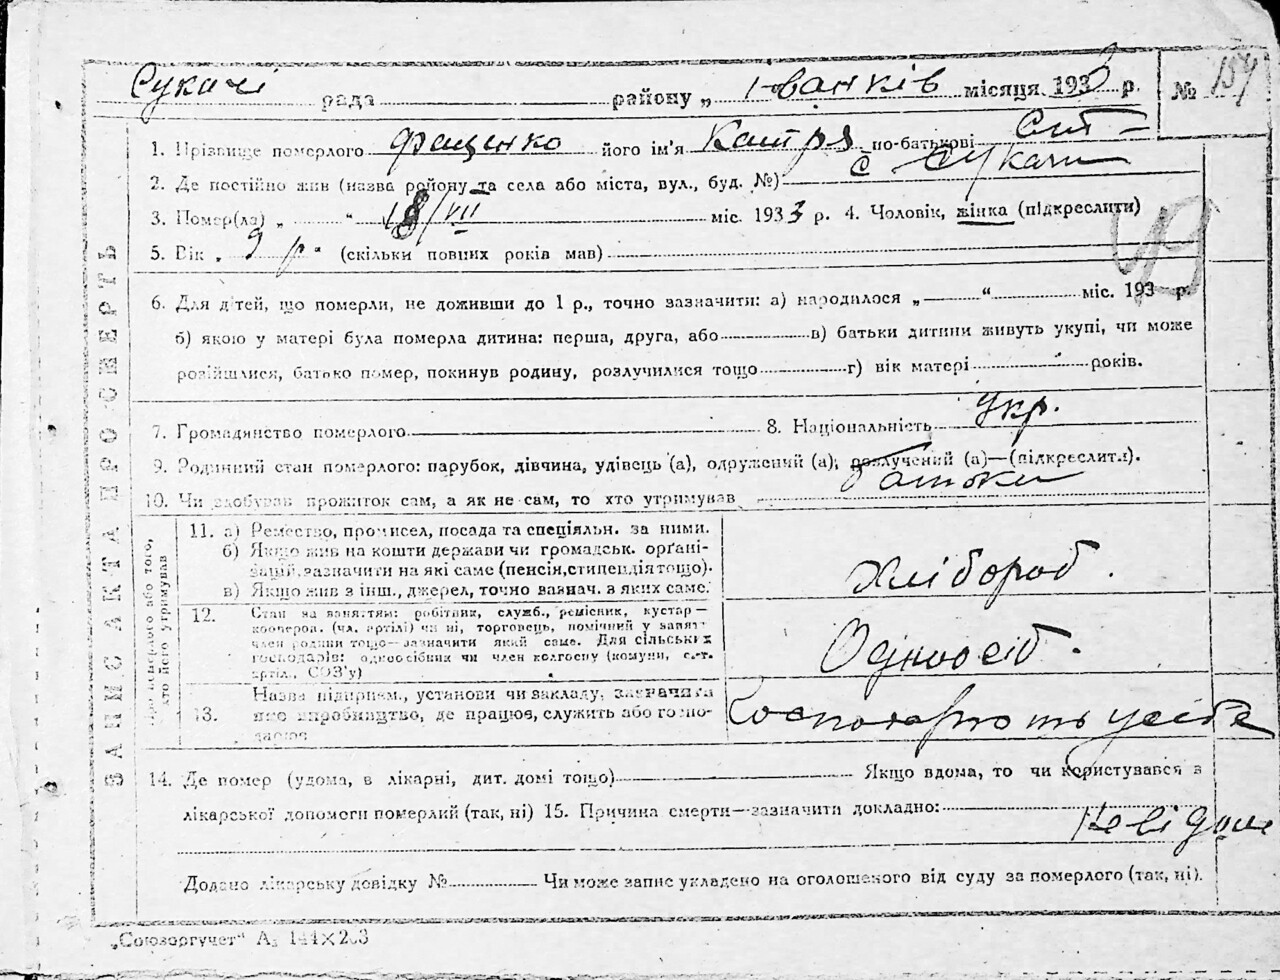 Сукачі рада району „ Іванків місяця 1933 р. № 154
1. Прізвище померлого Фещенко його ім'я Катря по-батькові
2. Де постійно жив (назва району та села або міста, вул., буд. №) с Сукачі
3. Помер(ла) „ “ 18/VII міс. 1933 р. 4. Чоловік, жінка (підкреслити)
5. Вік „ 9 р. “ (скільки повних років мав)
49
6. Для дітей, що померли, не доживши до 1 р., точно зазначити: а) народилося „ “ міс. 193 р.
б) якою у матері була померла дитина: перша, друга, або в) батьки дитини живуть укупі, чи може
розійшлися, батько помер, покинув родину, розлучилися тощо г) вік матері років.
7. Громадянство померлого 8. Національність Укр.
9. Родинний стан померлого: парубок, дівчина, удівець (а), одружений (а), розлучений (а)—(підкреслити).
10. Чи здобував прожиток сам, а як не сам, то хто утримував батьки
ЗАПИС АКТА ПРО СМЕРТЬ
Про померлого або того, хто його утримував
11. а) Ремество, промисел, посада та спеціяльн. за ними.
б) Якщо жив на кошти держави чи громадськ. орґані-
зацій, зазначити на які саме (пенсія, стипендія тощо).
в) Якщо жив з інш., джерел, точно зазнач. з яких саме.
Хлібороб.
12. Стан за заняттям: робітник, служб., ремісник, кустар—
кооперов. (чл. артілі) чи ні, торговець, помічний у занят.
член родини тощо—зазначити який саме. Для сільських
господарів: одноосібник чи член колгоспу (комуни, с.-г.
артіл., СОЗ'у)
Одноосіб.
13. Назва підприєм., установи чи закладу, зазначити
його виробництво, де працює, служить або госпо-
дарює
14. Де помер (удома, в лікарні, дит. домі тощо) Якщо вдома, то чи користувався з
лікарської допомоги померлий (так, ні) 15. Причина смерти—зазначити докладно:
Додано лікарську довідку № Чи може запис укладено на оголошеного від суду за померлого (так, ні).
„Союзоргучет“ А₅ 144×203